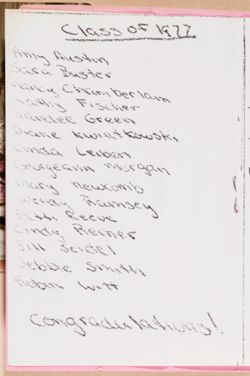 Class of 1977
Amy Austin
Sara Buster
Nancy Chamberlain
Kathy Fischer
Sandee Green
Diane Kwiatkowski
Linda Leiben
Georgeann Morgan
Mary Newcomb
Wendy Ramsey
Patti Reeve
Cindy Reiner
Jill Seidel
Debbie Smith
Robin Witt
Congradulations!